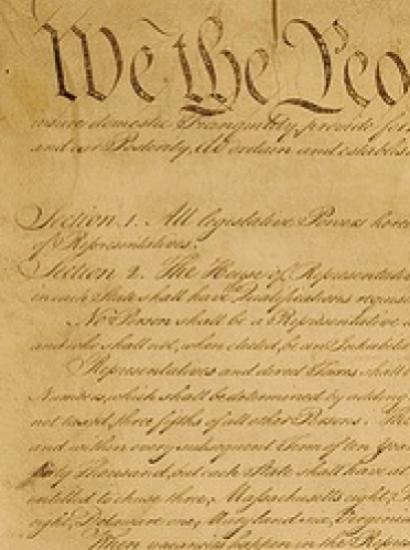 We the Peo
insure domestic Tranquility, provide for
and our Posterity, do ordain and establis
Section. 1. All legislative Powers here
of Representatives.
Section. 2. The House of Representati
in each State shall have Qualifications requis
No Person shall be a Representative
and who shall not, when elected, be an Inhabita
Representatives and direct Taxes shall
Numbers, which shall be determined by adding
not taxed, three fifths of all other Persons. The
and within every subsequent Term of ten Year
thirty Thousand, but each State shall have at
entitled to chuse three, Massachusetts eight,
eight, Delaware one, Maryland six, Virginia
When vacancies happen in the Repres